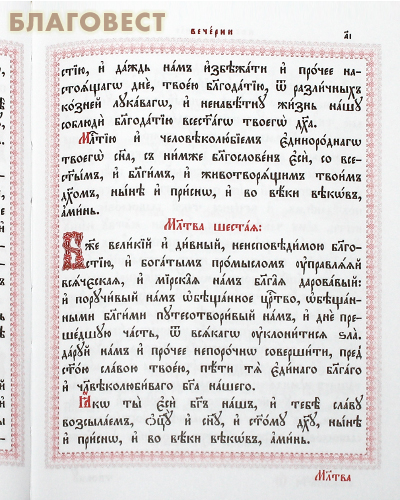 БЛАГОВЕСТ
вече́рни
а҃і
стїю, и҆ да́ждь на́мъ и҆збѣжа́ти и҆ про́чее на-
стоѧ́щагѡ днѐ, твое́ю бл҃года́тїю, ѿ разли́чныхъ
ко́зней лꙋка́вагѡ, и҆ ненавѣ́тнꙋ жи́знь на́шꙋ
соблюдѝ бл҃года́тїю всест҃а́гѡ твоегѡ̀ дх҃а.
Млⷭ҇тїю и҆ человѣколю́бїемъ є҆диноро́днагѡ
твоегѡ̀ сн҃а, съ ни́мже блгⷭ҇ове́нъ є҆сѝ, со все-
ст҃ы́мъ, и҆ бл҃ги́мъ, и҆ животворѧ́щимъ твои́мъ
дх҃омъ, ны́нѣ и҆ при́снѡ, и҆ во вѣ́ки вѣкѡ́въ,
а҆ми́нь.
Мл҃тва шеста́ѧ:
Бж҃е вели́кїй и҆ ди́вный, неисповѣди́мою бл҃го-
сты́нею, и҆ бога́тымъ про́мысломъ ᲂу҆правлѧ́ѧй
всѧ́чєскаѧ, и҆ мїрска̑ѧ на́мъ бл҃га̑ѧ дарова́вый:
и҆ порꙋчи́вый на́мъ ѡ҆бѣща́нное црⷭ҇тво, ѡ҆бѣща́н-
ными бл҃ги́ми пꙋтесотвори́вый на́мъ, и҆ днѐ пре-
ше́дшꙋю ча́сть, ѿ всѧ́кагѡ ᲂу҆клони́тисѧ ѕла̀:
да́рꙋй на́мъ и҆ про́чее непоро́чнѡ соверши́ти, пред̾
ст҃о́ю сла́вою твое́ю, пѣ́ти тѧ̀ є҆ди́наго бл҃га́го
и҆ чл҃вѣколюби́ваго бг҃а на́шего.
Ꙗ҆́кѡ ты̀ є҆сѝ бг҃ъ на́шъ, и҆ тебѣ̀ сла́вꙋ
возсыла́емъ, ѻ҆ц҃ꙋ̀ и҆ сн҃ꙋ, и҆ ст҃о́мꙋ дх҃ꙋ, ны́нѣ
и҆ при́снѡ, и҆ во вѣ́ки вѣкѡ́въ, а҆ми́нь.
Мл҃тва